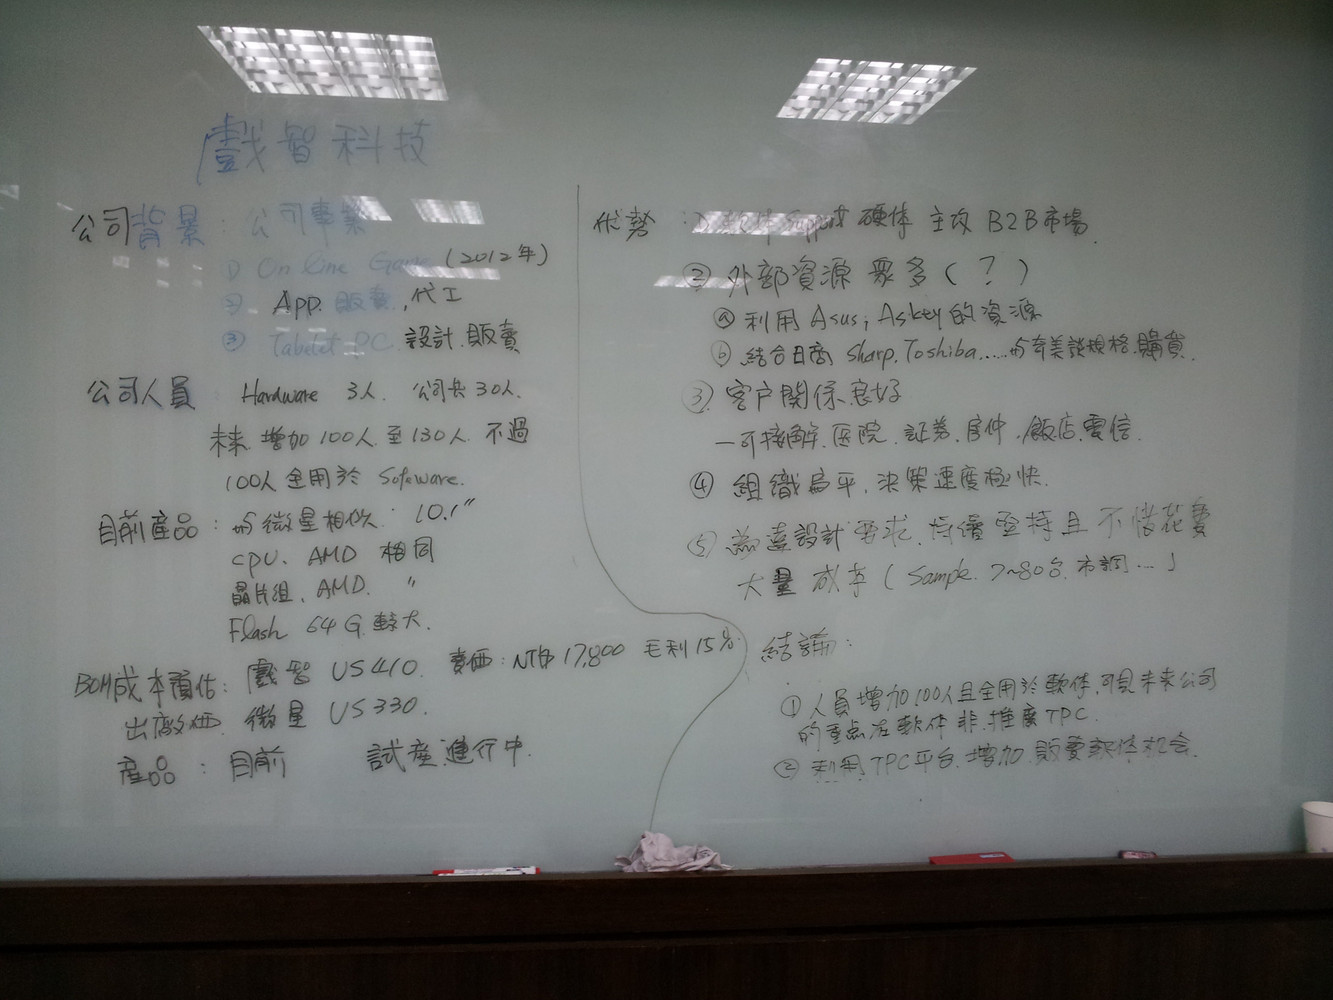 戲智科技
公司背景：公司事業
① On line Game (2012年)
② App. 販賣,代工
③ Tabelet PC 設計.販賣
公司人員 Hardware 3人. 公司共30人.
未來 增加100人 至130人 不過
100人全用於 Sofeware.
目前產品：与微星相似. 10.1"
CPU. AMD 相同
晶片組. AMD. "
Flash 64G 較大.
BOM成本預估：戲智 US410. 賣価：NT$ 17,800 毛利15%.
出廠価 微星 US330.
產品：目前 試產進行中.
优勢：① 軟体 Support 硬体 主攻 B2B市場.
② 外部資源 眾多(?)
ⓐ 利用 Asus, Askey的資源
ⓑ 結合日商 Sharp. Toshiba.....与奇美談規格.購買.
③ 客户關係良好
一可接觸.医院.証券.房仲.飯店.電信.
④ 組織扁平.決策速度極快.
⑤ 為達設計要求.持續堅持且不惜花費
大量成本(Sample. 7~80台.市調...)
結論：
① 人員增加100人且全用於軟体.可見未來公司
的重点在軟体非推廣TPC.
② 利用TPC平台.增加販賣軟体机会.